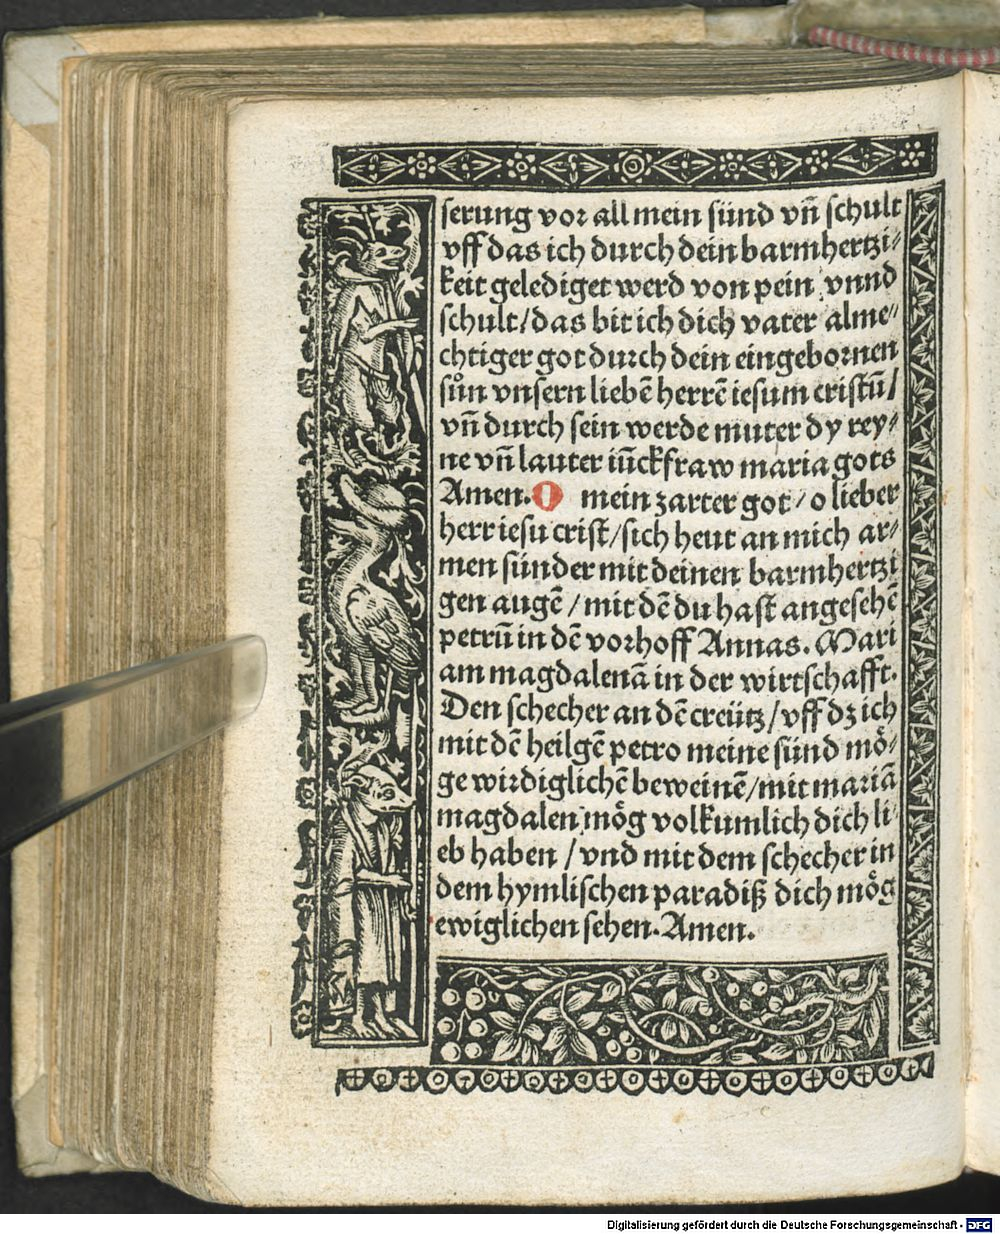 serung vor all mein sünd vñ schult
vff das ich durch dein barmhertzi⸗
keit gelediget werd von pein vnnd
schult/das bit ich dich vater alme⸗
chtiger got durch dein eingebornen
sůn vnsern liebē herrē iesum cristū/
vñ durch sein werde muter dy rey⸗
ne vñ lauter iūckfraw maria gots
Amen. O mein zarter got/o lieber
herr iesu crist/sich heut an mich ar⸗
men sünder mit deinen barmhertzi
gen augē/mit dē du hast angesehē
petrū in dē vorhoff Annas. Mari
am magdalenā in der wirtschafft.
Den schecher an dē creütz/vff dz ich
mit dē heilgē petro meine sünd mö⸗
ge wirdiglichē beweinē/mit mariā
magdalen mög volkumlich dich li⸗
eb haben/vnd mit dem schecher in
dem hymlischen paradiß dich mög
ewiglichen sehen. Amen.
Digitalisierung gefördert durch die Deutsche Forschungsgemeinschaft - DFG